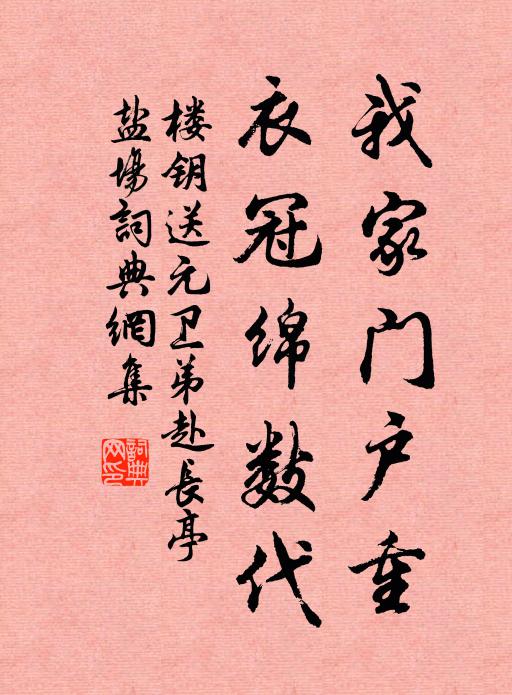 我家门户重
衣冠绵数代
楼钥送元卫弟赴长亭
盐场词典網集
詞典網印